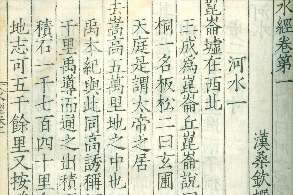 水經卷第一
漢桑欽撰
河水一
崑崙墟在西北
三成爲崑崙丘崑崙說
桐一名板松二曰玄圃
天庭是謂太帝之居
去嵩高五萬里地之中也
禹本紀與此同高誘稱
千里禹導而通之出積
積石一千七百四十里
地志可五千餘里又按